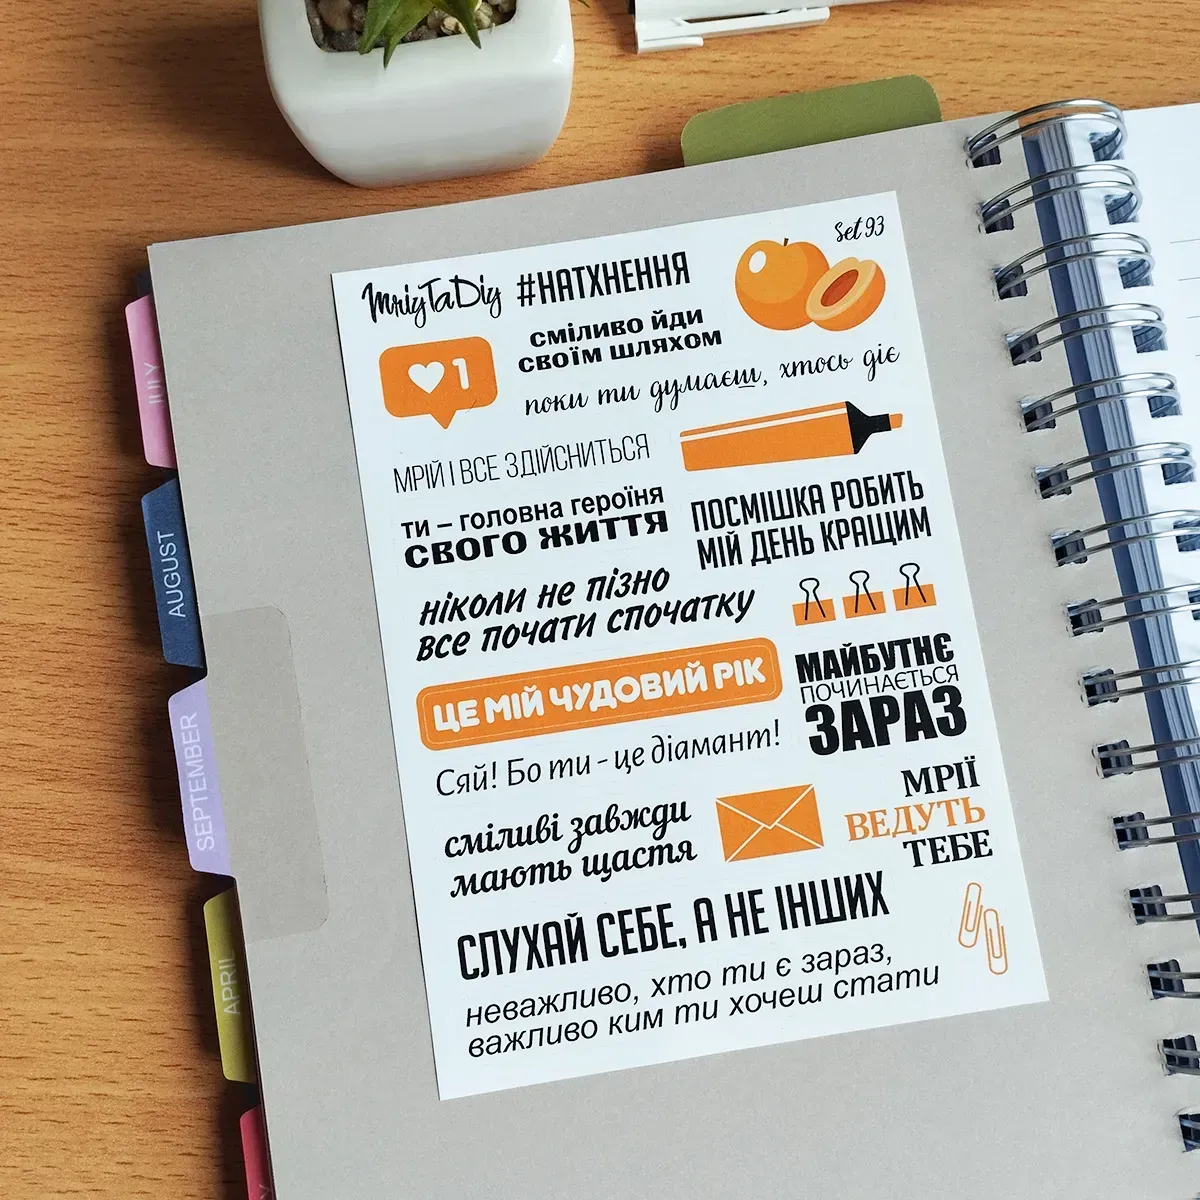 Set 93
MriyTaDiy #НАТХНЕННЯ
1
СМІЛИВО ЙДИ
СВОЇМ ШЛЯХОМ
поки ти думаєш, хтось діє
МРІЙ І ВСЕ ЗДІЙСНИТЬСЯ
ти – головна героїня
СВОГО ЖИТТЯ
ПОСМІШКА РОБИТЬ
МІЙ ДЕНЬ КРАЩИМ
ніколи не пізно
все почати спочатку
ЦЕ МІЙ ЧУДОВИЙ РІК
МАЙБУТНЄ
ПОЧИНАЄТЬСЯ
ЗАРАЗ
Сяй! Бо ти - це діамант!
сміливі завжди
мають щастя
МРІЇ
ВЕДУТЬ
ТЕБЕ
СЛУХАЙ СЕБЕ, А НЕ ІНШИХ
неважливо, хто ти є зараз,
важливо ким ти хочеш стати
JULY
AUGUST
SEPTEMBER
APRIL